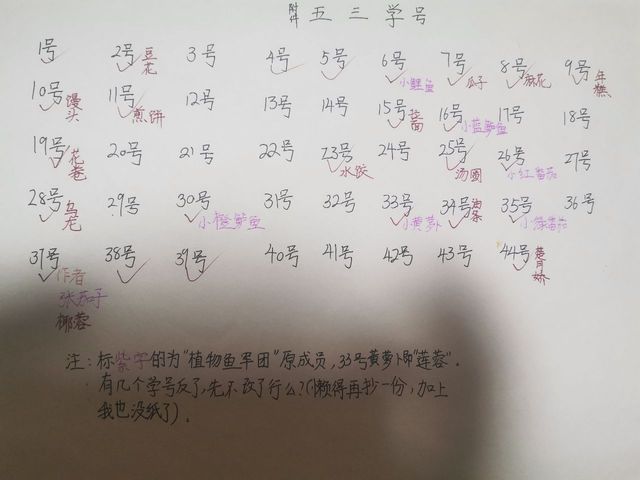 附件 五三学号
1号 2号 豆花 3号 4号 5号 6号 小鲤鱼 7号 瓜子 8号 麻花 9号 年糕
10号 馒头 11号 煎饼 12号 13号 14号 15号 16号 小蓝鲈鱼 17号 18号
19号 花卷 20号 21号 22号 23号 水饺 24号 25号 汤圆 26号 小红番茄 27号
28号 乌龙 29号 30号 小橙鲈鱼 31号 32号 33号 小黄萝卜 34号 35号 小绿番茄 36号
37号 作者 张茄子 椰蓉 38号 39号 40号 41号 42号 43号 44号 楚月娇
注：标紫字的为“植物鱼军团”原成员，33号黄萝卜即“莲蓉”．
有几个学号反了，先不改了行么？(懒得再抄一份，加上
我也没纸了)．